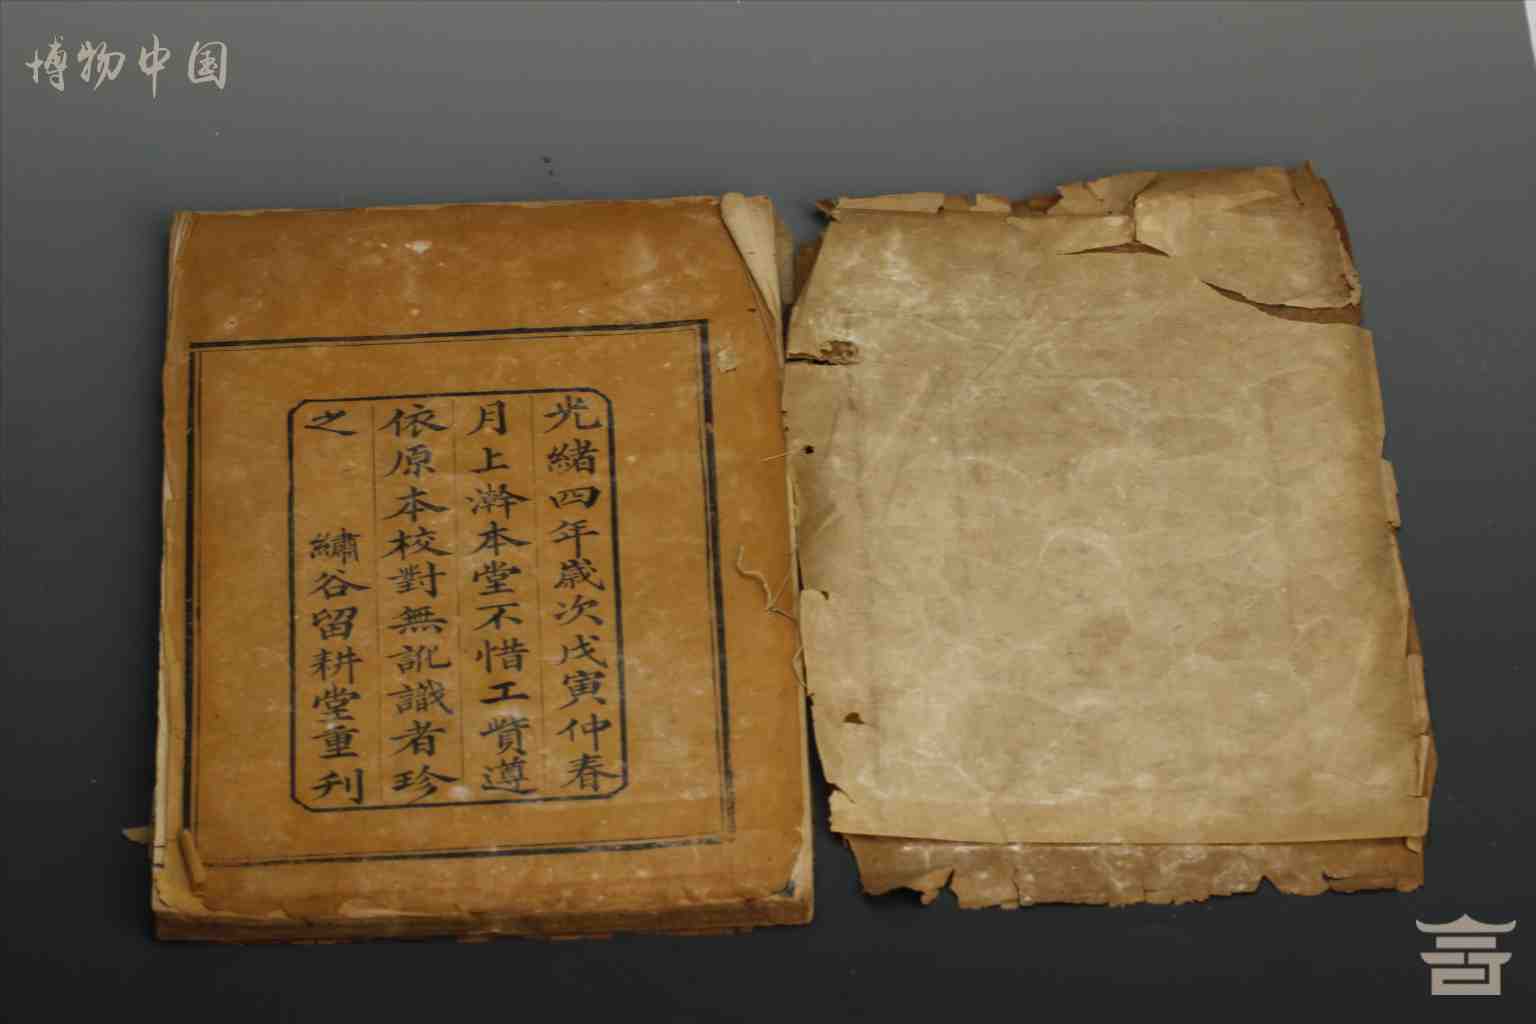 博物中国
光緒四年歲次戊寅仲春
月上澣本堂不惜工貲遵
依原本校對無訛識者珍
之　繡谷留耕堂重刋